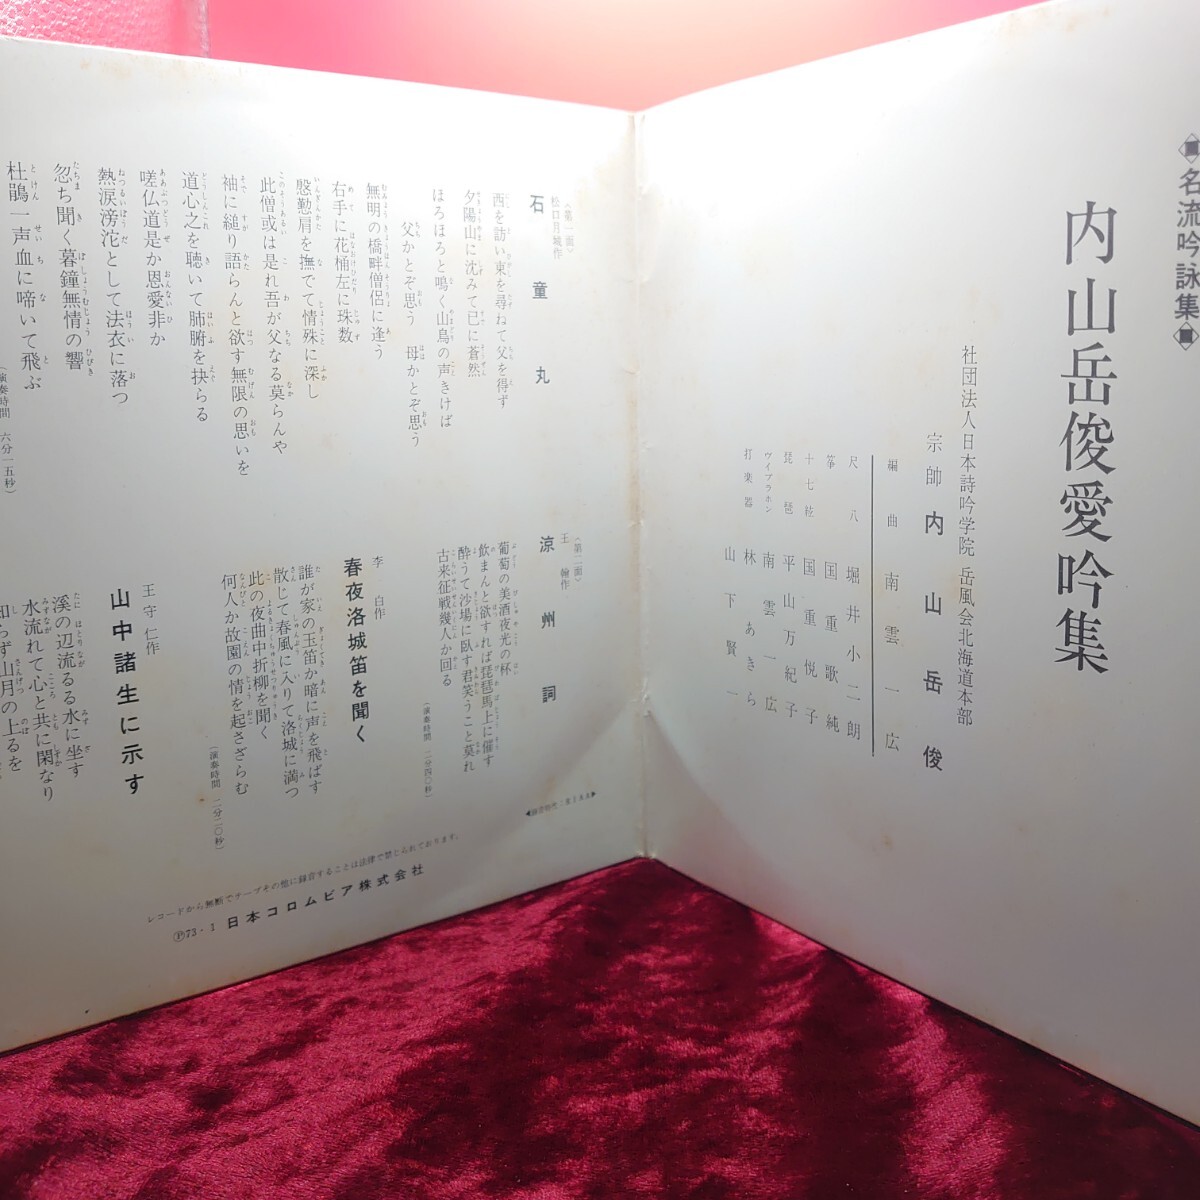 ◈名流吟詠集◈
内山岳俊愛吟集
社団法人日本詩吟学院 岳風会北海道本部
宗帥 内山岳俊
編曲 南雲一広
尺八 堀井小二朗
箏 国重歌純
十七絃 国重悦子
琵琶 平山万紀子
ヴイブラホン 南雲一広
打楽器 林あきら
山下賢一
〈第一面〉
松口月城作
石童丸
西を訪い東を尋ねて父を得ず
夕陽山に沈みて已に蒼然
ほろほろと鳴く山鳥の声きけば
父かとぞ思う 母かとぞ思う
無明の橋畔僧侶に逢う
右手に花桶左に珠数
慇懃肩を撫でて情殊に深し
此僧或は是れ吾が父なる莫らんや
袖に縋り語らんと欲す無限の思いを
道心之を聴いて肺腑を抉らる
嗟仏道是か恩愛非か
熱涙滂沱として法衣に落つ
忽ち聞く暮鐘無情の響
杜鵑一声血に啼いて飛ぶ
(演奏時間 六分一五秒)
〈第二面〉
王翰作
涼州詞
葡萄の美酒夜光の杯
飲まんと欲すれば琵琶馬上に催す
酔うて沙場に臥す君笑うこと莫れ
古来征戦幾人か回る
(演奏時間 二分四〇秒)
李白作
春夜洛城笛を聞く
誰が家の玉笛か暗に声を飛ばす
散じて春風に入りて洛城に満つ
此の夜曲中折柳を聞く
何人か故園の情を起さざらむ
(演奏時間 二分二〇秒)
王守仁作
山中諸生に示す
溪の辺流るる水に坐す
水流れて心と共に閑なり
知らず山月の上るを
レコードから無断でテープその他に録音することは法律で禁じられております。
Ⓟ73・1 日本コロムビア株式会社